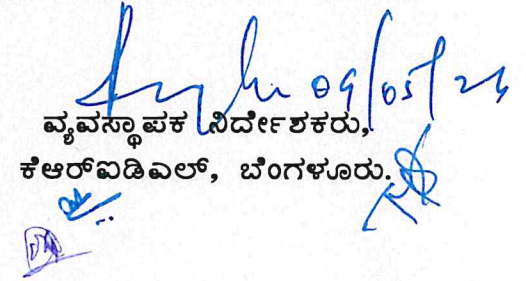 09/05/24
ವ್ಯವಸ್ಥಾಪಕ ನಿರ್ದೇಶಕರು,
ಕೆಆರ್‌ಐಡಿಎಲ್, ಬೆಂಗಳೂರು.